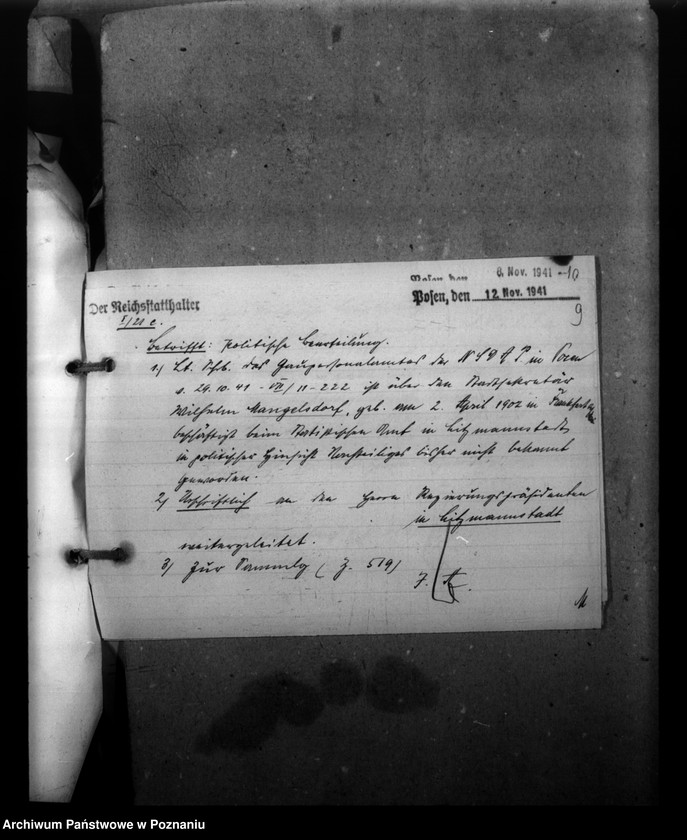 8. Nov. 1941 -10
Posen, den
Der Reichsstatthalter
Posen, den 12. Nov. 1941
I/20 c.
9
Betrifft: Politische Beurteilung.
1.) Lt. Schb. des Gaupersonalamtes der NSDAP. in Posen
v. 29.10.41 - VII/11-222 ist über den Stadtsekretär
Wilhelm Mangelsdorf, geb. am 2. April 1902 in Frankfurt
beschäftigt beim Städtischen Amt in Litzmannstadt
in politischer Hinsicht Nachteiliges bisher nicht bekannt
geworden.
2.) Urschriftlich an den Herrn Regierungspräsidenten
in Litzmannstadt
weitergeleitet.
3) Zur Sammlg (Z. 519)
J. A.
M
Archiwum Państwowe w Poznaniu